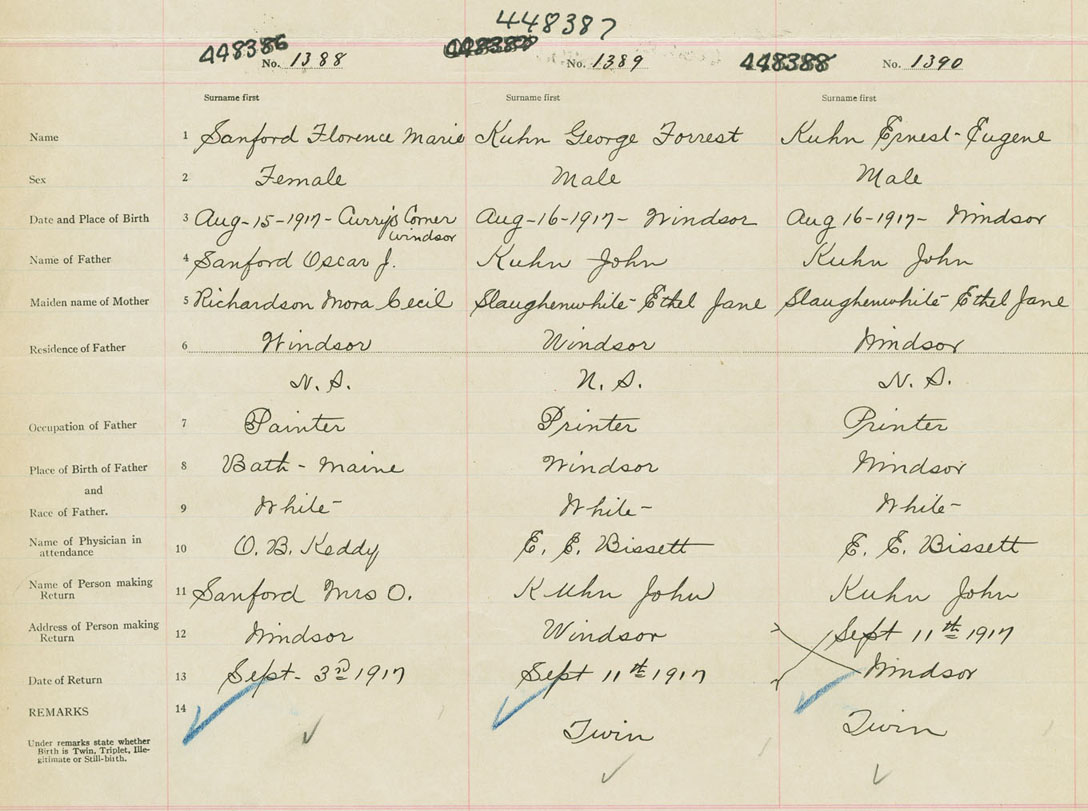 448387
448386 448388
No. 1388 No. 1389 No. 1390
Surname first Surname first Surname first
Name 1 Sanford Florence Marie Kuhn George Forrest Kuhn Ernest-Eugene
Sex 2 Female Male Male
Date and Place of Birth 3 Aug-15-1917- Curry's Corner Aug-16-1917- Windsor Aug 16-1917- Windsor
Windsor
Name of Father 4 Sanford Oscar J. Kuhn John Kuhn John
Maiden name of Mother 5 Richardson Mora Cecil Slaughenwhite- Ethel Jane Slaughenwhite- Ethel Jane
Residence of Father 6 Windsor Windsor Windsor
N.S. N.S. N.S.
Occupation of Father 7 Painter Printer Printer
Place of Birth of Father 8 Bath-Maine Windsor Windsor
and
Race of Father. 9 White- White- White-
Name of Physician in
attendance 10 O. B. Keddy E. E. Bissett E. E. Bissett
Name of Person making
Return 11 Sanford Mrs O. Kuhn John Kuhn John
Address of Person making
Return 12 Windsor Windsor Sept 11th 1917
Date of Return 13 Sept- 3rd 1917 Sept 11th 1917 Windsor
REMARKS 14
Twin Twin
Under remarks state whether
Birth is Twin, Triplet, Ille-
gitimate or Still-birth.